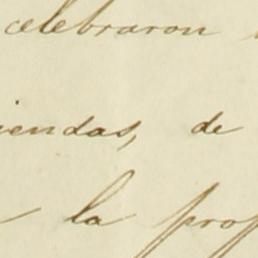 celebraron
iendas, de
la prop